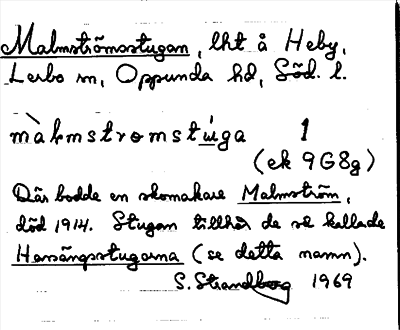 Malmströmsstugan, lht å Heby,
Lerbo sn, Oppunda hd, Söd. l.
màlmstromstúga 1
(ek 9G8g)
Där bodde en skomakare Malmström,
död 1914. Stugan tillhör de så kallade
Harsängsstugorna (se detta namn).
S. Strandberg 1969